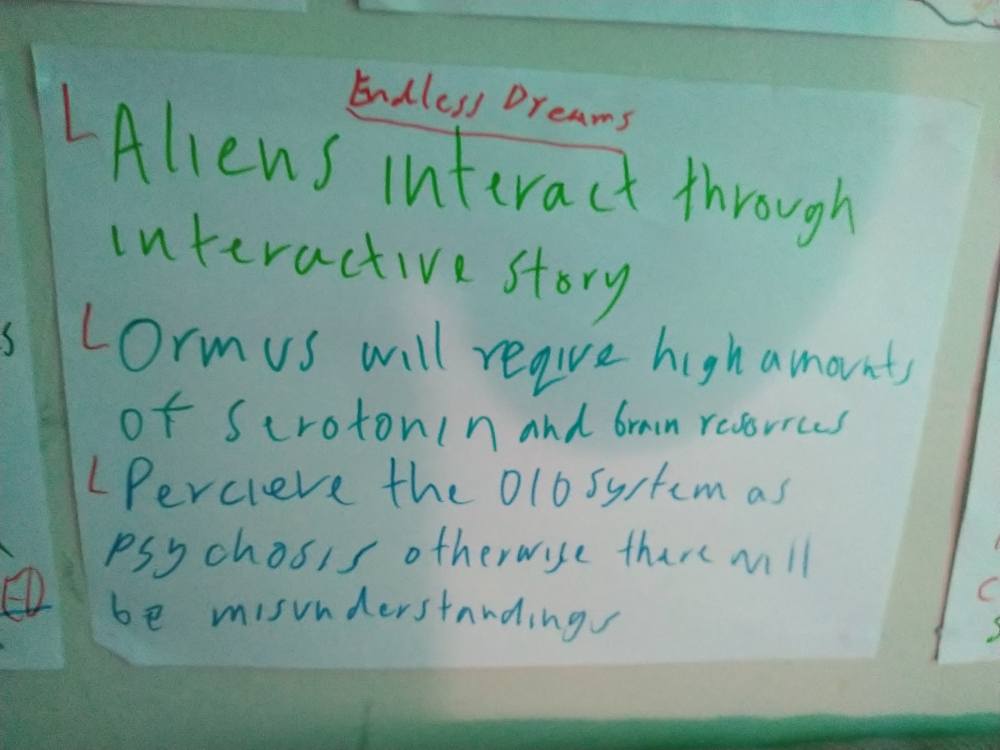 Endless Dreams
Aliens interact through
interactive story
Ormus will reqive high amounts
of serotonin and brain resources
Percieve the 010 system as
psychosis otherwise there will
be misunderstandings